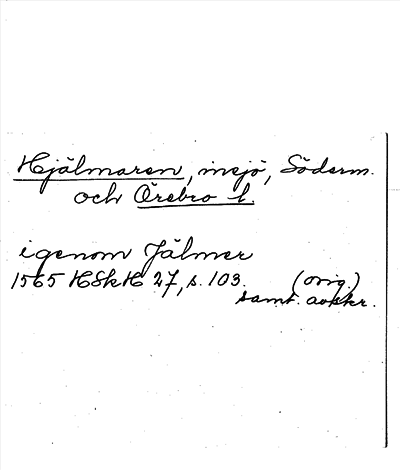 Hjälmaren, insjö, Söderm.
och Örebro l.
igenom Jälmer
1565 HSkH 27, s. 103. (orig.)
samt. avskr.